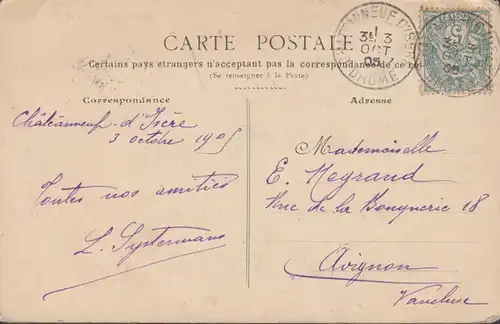 CARTE POSTALE
Certains pays étrangers n'acceptant pas la correspondance de ce côté
(Se renseigner à la Poste)
Correspondance
Adresse
Châteauneuf-d'Isère
3 octobre 1905
Toutes nos amitiés
L. Systermans
Mademoiselle
E. Meyrand
Rue de la Bonneterie 18
Avignon
Vaucluse
3
OCT
05
DROME